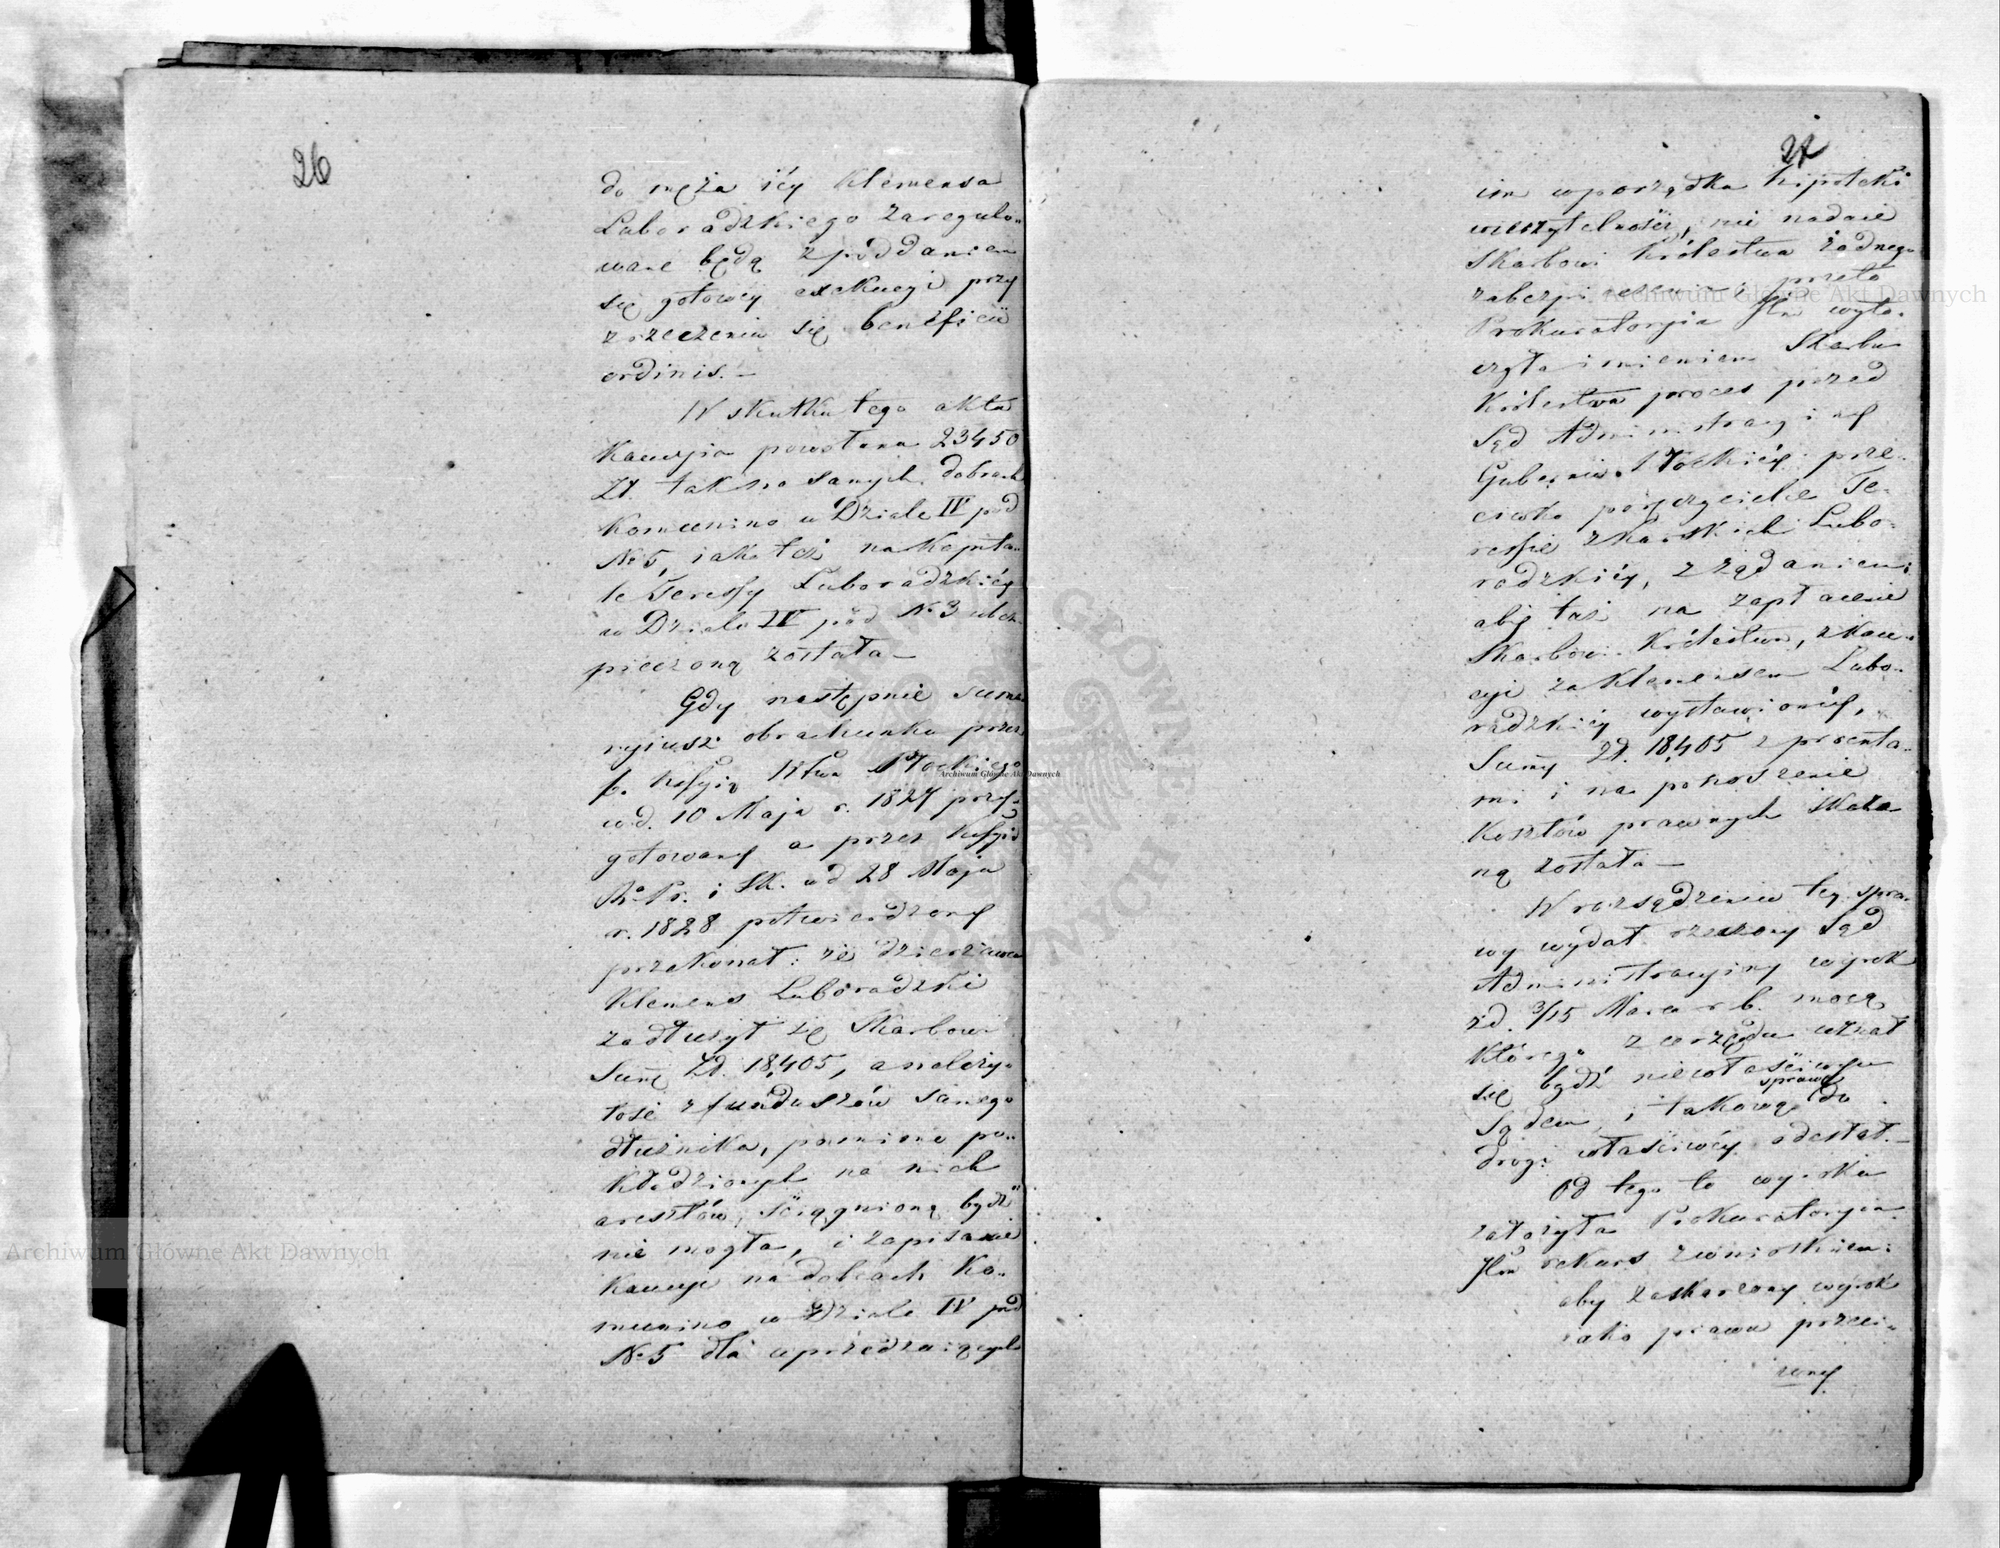 26
do męża iéy Klemensa
Luboradzkiego zaregulo-
wane będą z poddaniem
się gotowéy exekucyi przy
zrzeczeniu się beneficii
ordinis. —
W skutku tego aktu
Kaucyia powołana 23450
Zł. tak na samych dobrach
Komunino w Dziale IV pod
No 5, iako też na Kapita-
le Teressy Luboradzkiéy
w Dziale IV pod No 3 ubez-
pieczoną została —
Gdy następnie Summa-
ryiusz obrachunku przez
b. Kssyią Wtwa Płockiego
w d. 10 Maja r. 1827 przy-
gotowany a przez Kssyią
Rą Pr. i Sk. w d 28 Maja
r. 1828 potwierdzony
przekonał: że dzierżawca
Klemens Luboradzki
zadłużył się Skarbowi
Summę Zł. 18,405, a należy-
tość z funduszów samego
dłużnika, pomimo po-
kładzionych na nich
aresztów, ściągnioną bydź
nie mogła, i zapisanie
Kaucyi na dobrach Ko-
munino w Dziale IV pod
No 5 dla uprzedzaiących
27
im w porządku hipoteki
wierzytelności, nie nadaie
Skarbowi Królestwa żadnego
zabezpieczenia; przeto
Prokuratoryia Jlna wyto-
czyła imieniem Skarbu
Królestwa proces przed
Sąd Administracyiny
Gubernii Płockiéy prze-
ciwko poręczycielce Te-
ressie z Karskich Lubo-
radzkiéy, z żądaniem:
aby taż na zapłacenie
Skarbowi Królestwa, z Kau-
cyi za Klemensem Lubo-
radzkiéy wystawionéy,
Summy Zł. 18,405 z procenta-
mi i na ponoszenie
Kosztów prawnych skaza
ną została —
W rozsądzeniu téy spra-
wy wydał rzeczony Sąd
Administracyiny wyrok
z d. 3/15 Marca r. b. mocą
którego z urzędu uznał
się bydź niewłaściwym
sprawę
Sądem, i takową do
drogi właściwéy odesłał. —
Od tego to wyroku
założyła Prokuratoryia
Jlna rekurs z wnioskiem:
aby zaskarżony wyrok
iako prawu przeci-
wny
Archiwum Główne Akt Dawnych
Archiwum Główne Akt Dawnych
Archiwum Główne Akt Dawnych